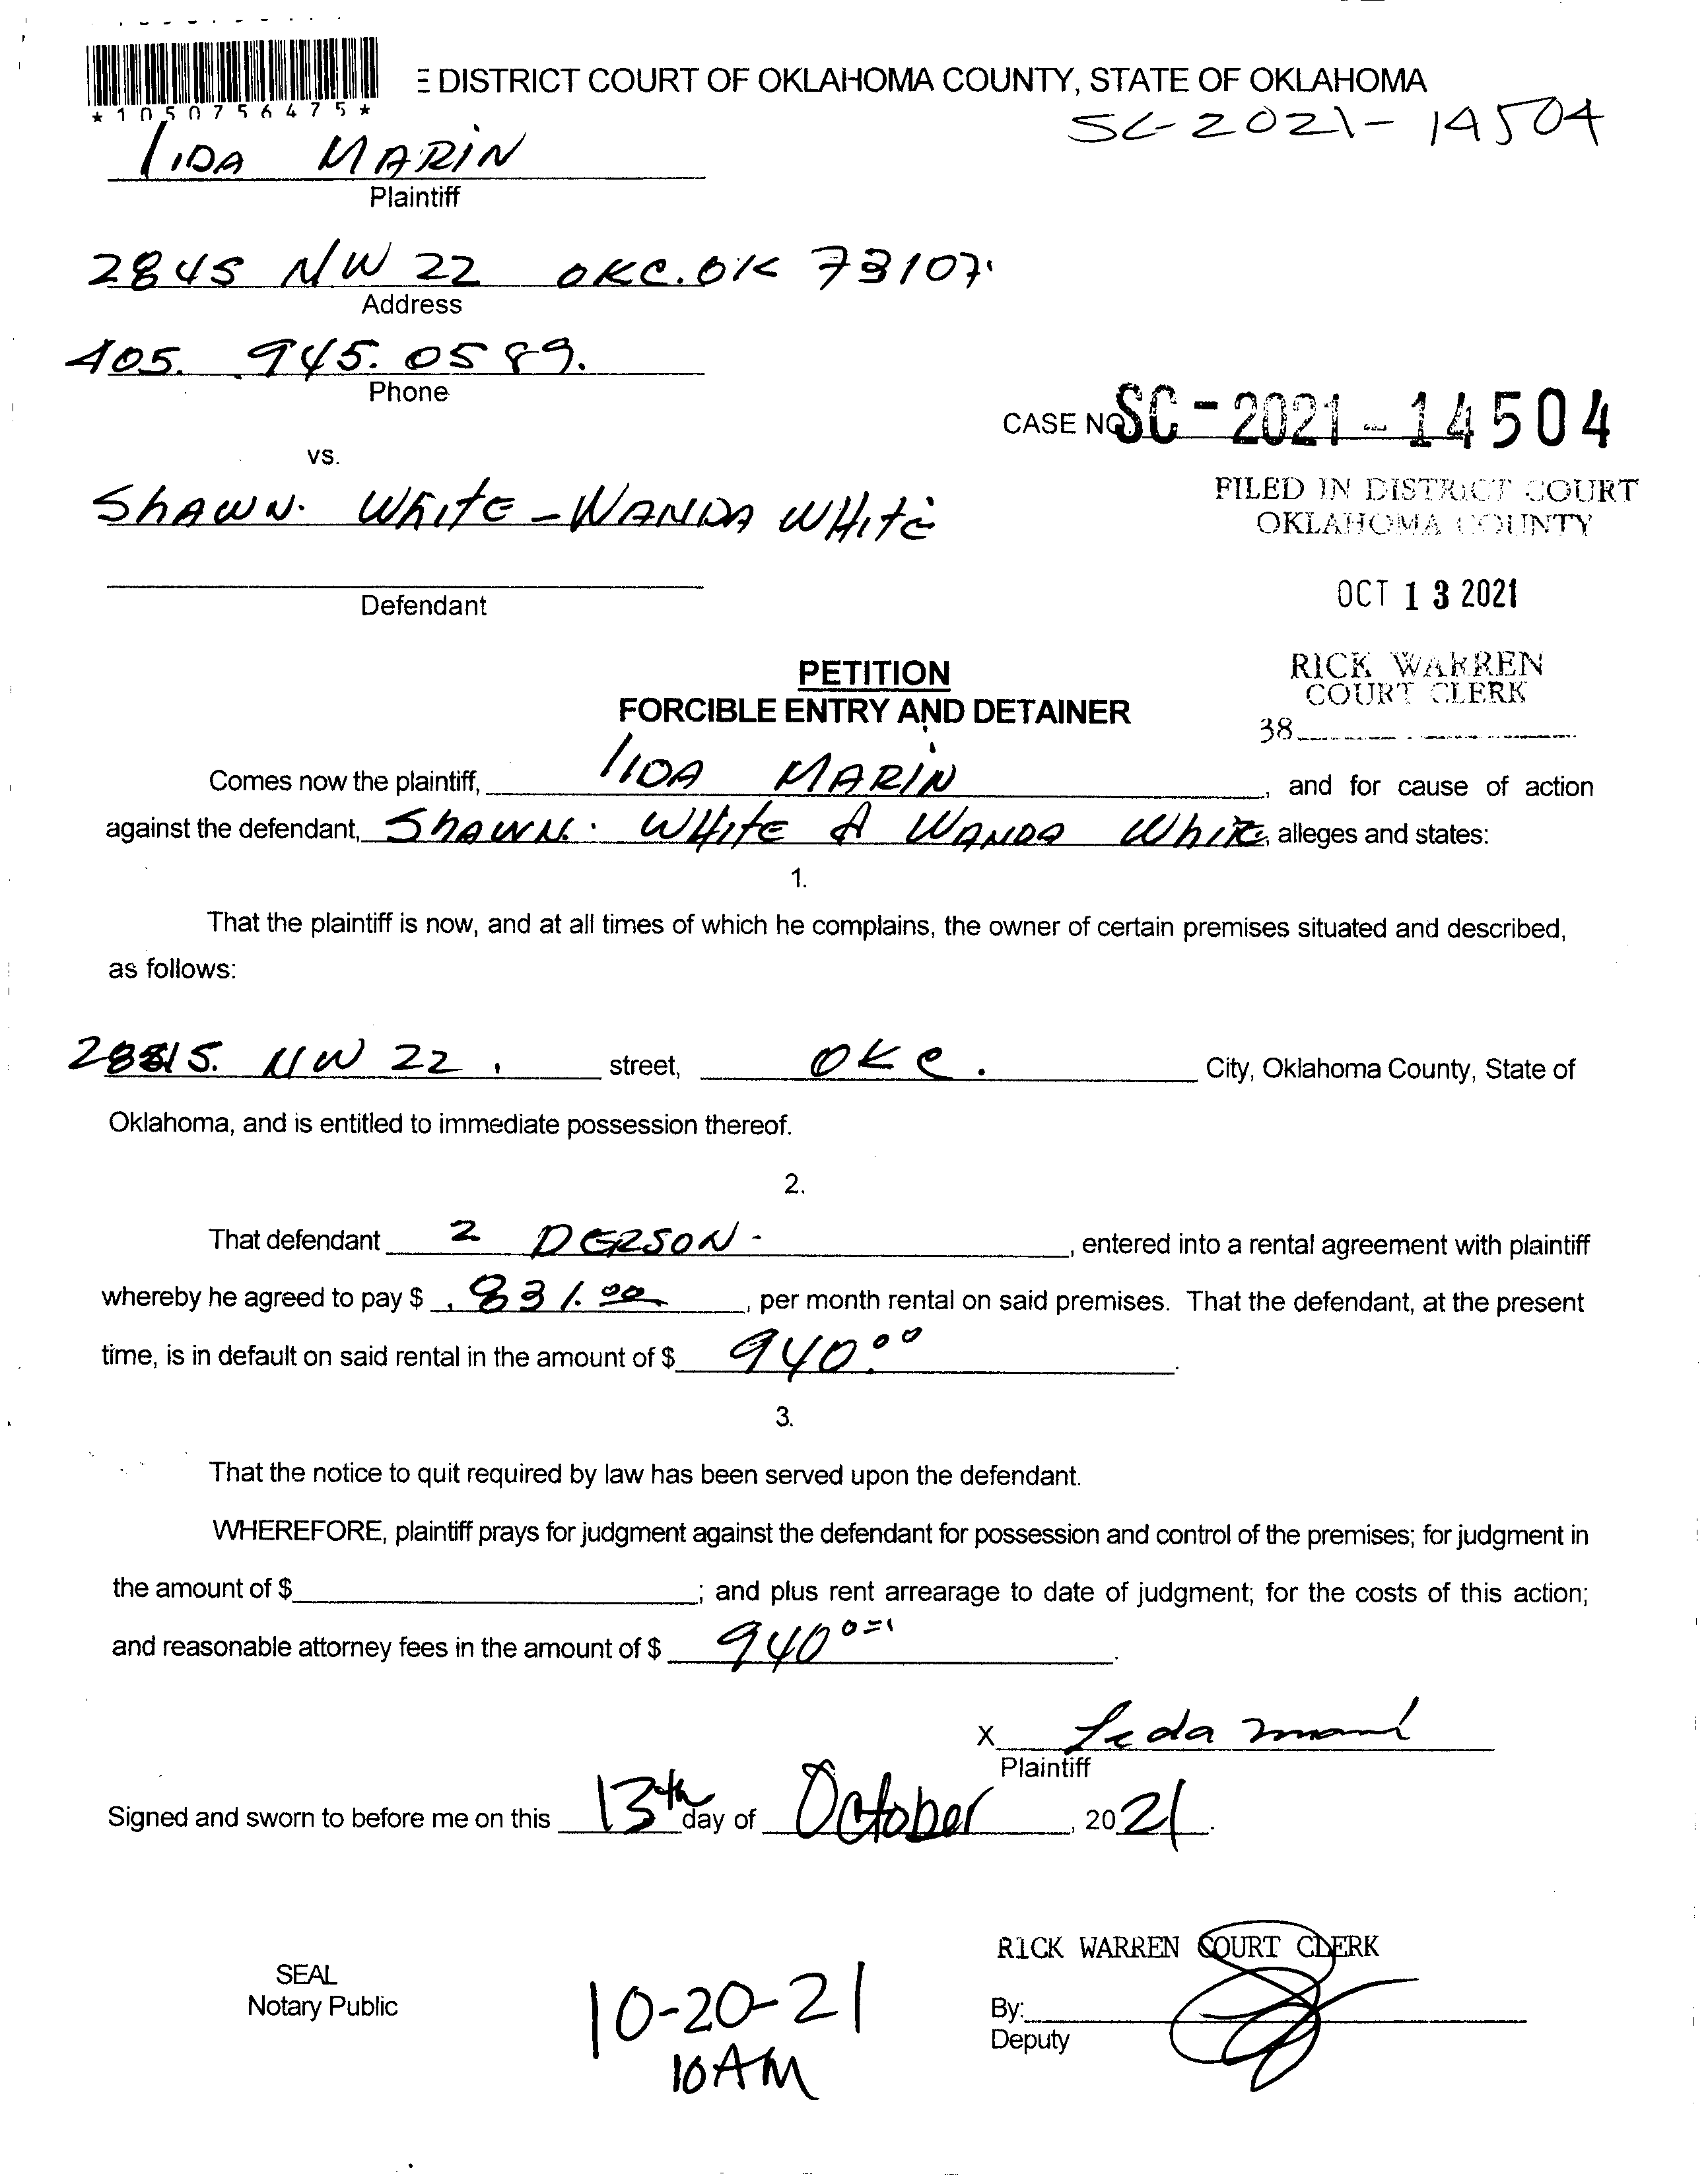 *1050756475*
E DISTRICT COURT OF OKLAHOMA COUNTY, STATE OF OKLAHOMA
SC-2021-14504
liDA MARiN
Plaintiff
2845 NW 22 OKC.OK 73107.
Address
405. 945.0589.
Phone
CASE NO. SC-2021-14504
vs.
FILED IN DISTRICT COURT
OKLAHOMA COUNTY
SHAWN. WhitE - WANDA WHite
OCT 13 2021
Defendant
RICK WARREN
COURT CLERK
38
PETITION
FORCIBLE ENTRY AND DETAINER
Comes now the plaintiff, liDA MARIN, and for cause of action
against the defendant, ShAWN. WHitE & WANDA White, alleges and states:
1.
That the plaintiff is now, and at all times of which he complains, the owner of certain premises situated and described,
as follows:
NW 22. street, OKC. City, Oklahoma County, State of
Oklahoma, and is entitled to immediate possession thereof.
2.
That defendant 2 PERSON-, entered into a rental agreement with plaintiff
whereby he agreed to pay $ . 831.00, per month rental on said premises. That the defendant, at the present
time, is in default on said rental in the amount of $ 940.00.
3.
That the notice to quit required by law has been served upon the defendant.
WHEREFORE, plaintiff prays for judgment against the defendant for possession and control of the premises; for judgment in
the amount of $; and plus rent arrearage to date of judgment; for the costs of this action;
and reasonable attorney fees in the amount of $ 940.
X Lida Marin
Plaintiff
Signed and sworn to before me on this 13th day of October, 2021.
RICK WARREN COURT CLERK
SEAL
Notary Public
10-20-21
10 AM
By:
Deputy